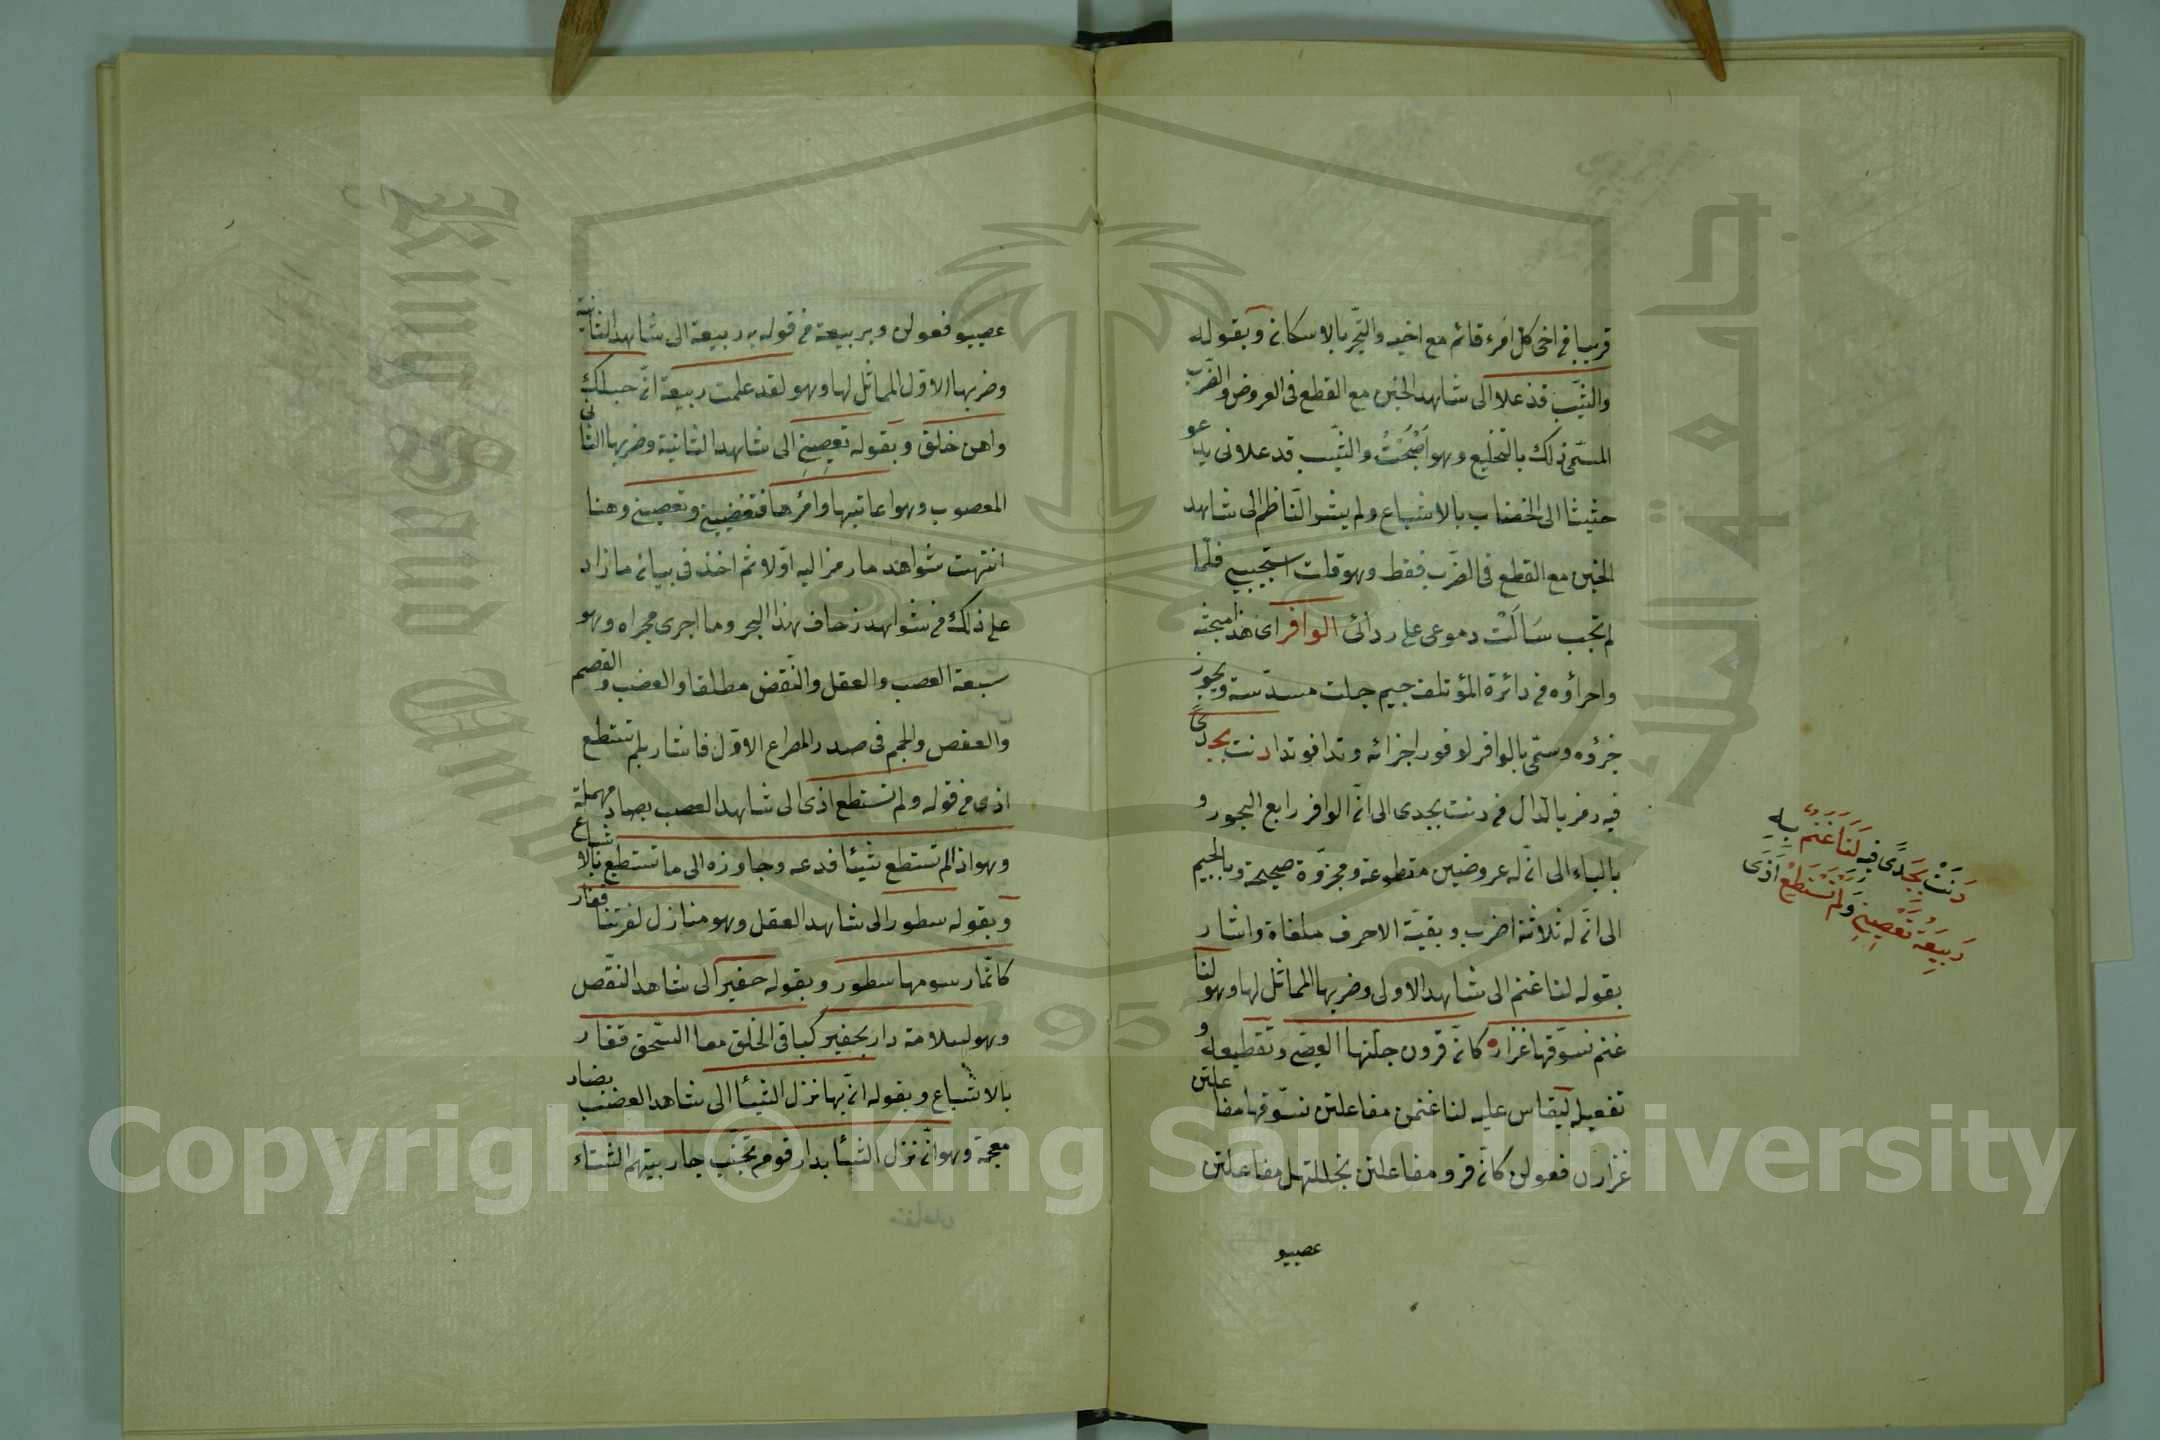 قريبا في اخى كل امرء قائم مع اخيه والتجر بالاسكان وبقوله
والشيب قد علا الى شاهد الخبن مع القطع فى العروض والضرب
المسمى ذلك بالتخليع وهو اصبحت والشيب قد علانى يدعو
حثيثا الى الخضاب بالاشباع ولم يشر الناظم الى شاهد
الخبن مع القطع فى الضرب فقط وهو قلت استجيبى فلما
لم تجب سالت دموعى على ردائى الوافر اى هذا مبحثه
واجزاؤه فى دائرة المؤتلف جيم جلت مسدسة ويجوز
جزؤه وسمى بالوافر لوفور اجزائه وتدا فوتدا دنت بجدى
فيه رمز بالدال فى دنت بجدى الى ان الوافر رابع البحور و
بالباء الى ان له عروضين مقطوعة ومجزوة صحيحة وبالجيم
الى ان له ثلاثة اضرب وبقية الاحرف ملغاة واشار
بقوله لنا غنم الى شاهد الاولى وضربها المماثل لها وهو لنا
غنم نسوقها غزاره كان قرون جلتها العصى وتقطيعه و
تفعيله ليقاس عليه لنا غنمن مفاعلتن نسوقها مفاعلتن
غزارن فعولن كان قرو مفاعلتن نجللتهل مفاعلتن
عصيو
دَنَتْ بِجَدًى فيه لَنَا غَنَمٌ بِهِ
رَبِيعَةُ تَعْصِينِى وَلَمْ تَسْتَطِعْ اَذَى
عصيو فعولن وبربيعة فى قوله به ربيعة الى شاهد الثانية
وضربها الاول المماثل لها وهو لقد علمت ربيعة ان حبلك
واهن خلق وبقوله تعصينى الى شاهد الثانية وضربها الثانى
المعصوب وهو اعاتبها وامرها فتغضبنى وتعصينى وهنا
انتهت شواهد ما رمز اليه اولا ثم اخذ فى بيان ما زاد
على ذلك فى شواهد زحاف هذا البحر وما اجرى مجراه وهو
سبعة العصب والعقل والنقص مطلقا والعضب والقصم
والعقص والجمم فى صدر المصراع الاول فاشار بلم تستطع
اذى فى قوله ولم تستطع اذى الى شاهد العصب بصاد مهملة
وهو اذا لم تستطع شيئا فدعه وجاوزه الى ما تستطيع بالاشباع
وبقوله سطور الى شاهد العقل وهو منازل لفرتنا قفار
كانما رسومها سطور وبقوله حفير الى شاهد النقص
وهو لسلامة دار بحفير كباقى الخلق معا السحق قفار
بالاشباع وبقوله ان بها نزل الشيئا الى شاهد العضب بضاد
معجمة وهو ان نزل الشيئا بدار قوم تجنب جار بيتهم الشتاء